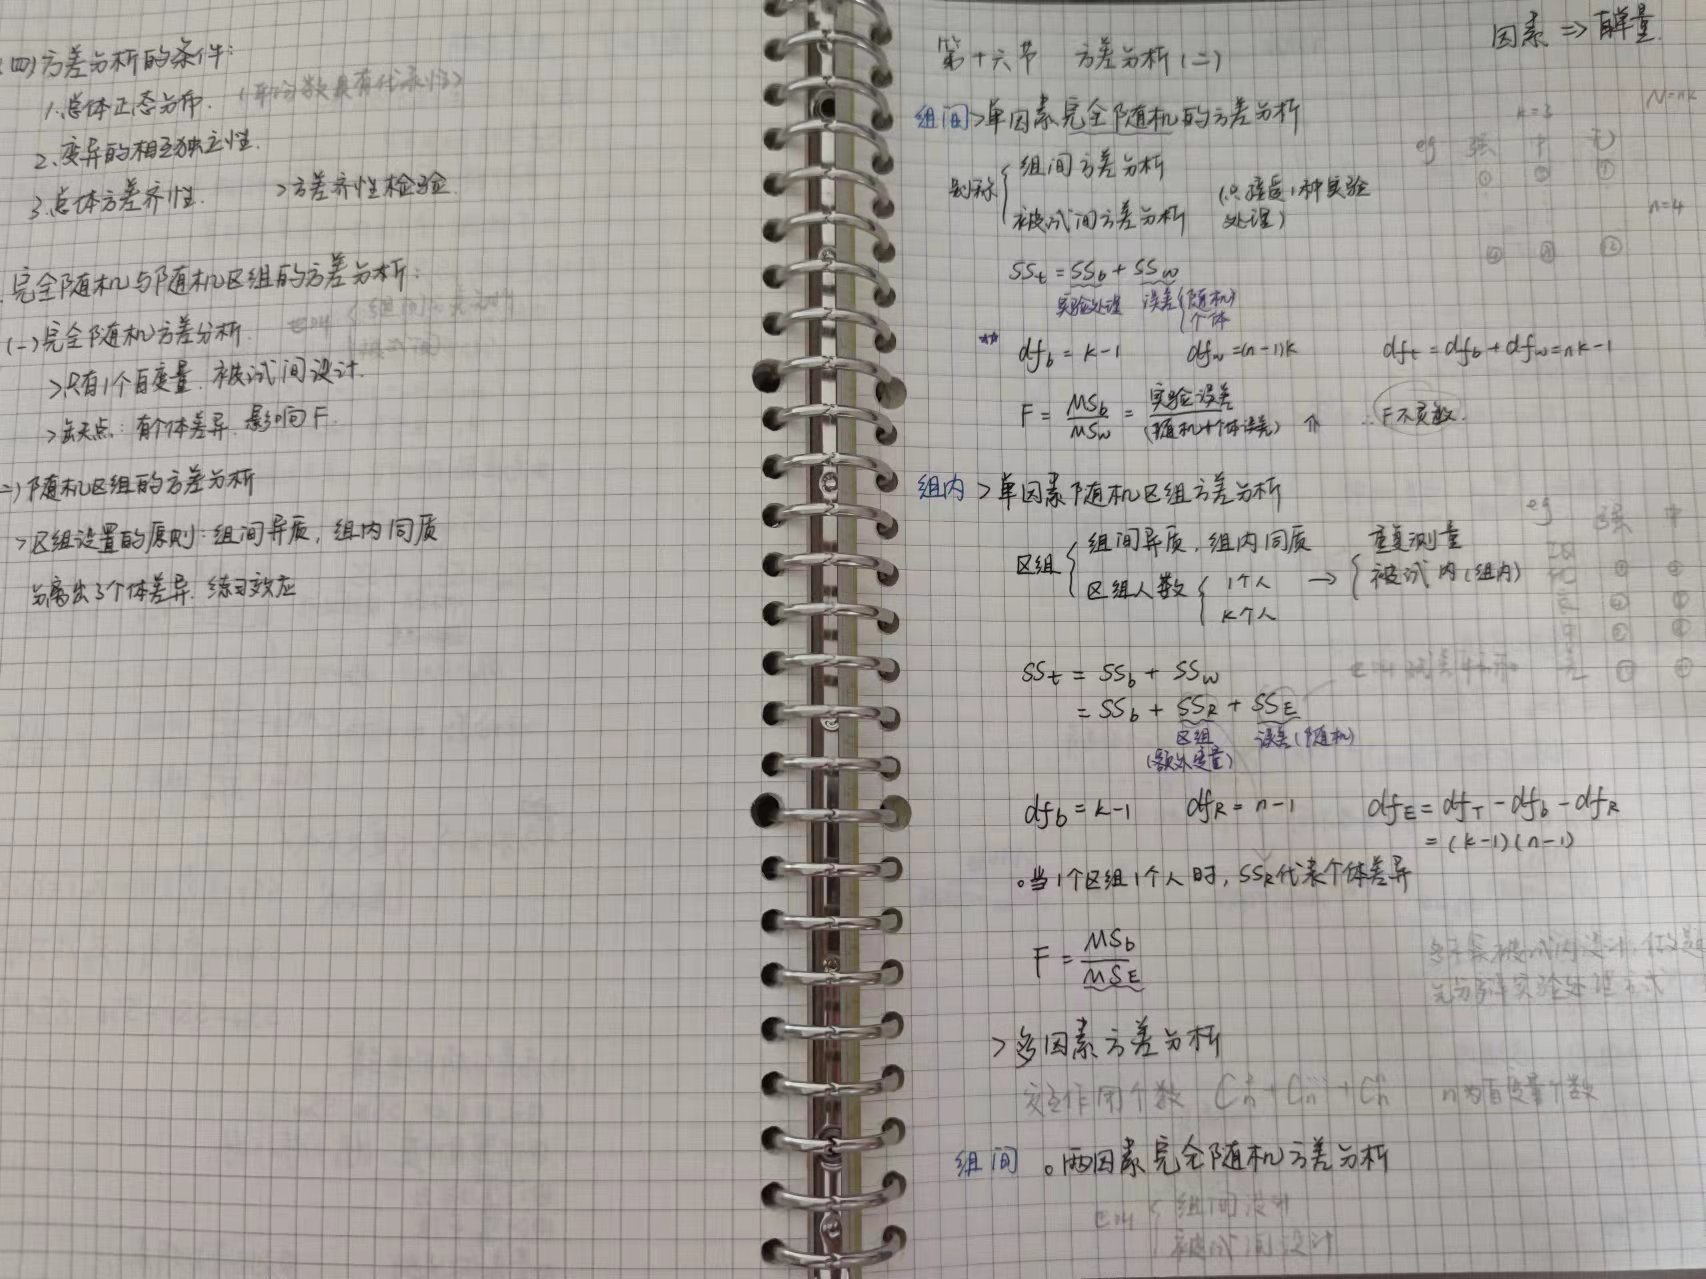 (四)方差分析的条件:
1.总体正态分布.
2.变异的相互独立性.
3.总体方差齐性. >方差齐性检验
完全随机与随机区组的方差分析:
(一)完全随机方差分析
>只有1个自变量.被试间设计.
>缺点:有个体差异.影响F.
二)随机区组的方差分析
>区组设置的原则:组间异质,组内同质
分离出了个体差异.练习效应
因素 => 自单量
第十六节 方差分析(二)
组间>单因素完全随机的方差分析
N=nk
k=3
eg 强 中 无
别称{组间方差分析
被试间方差分析 (只接受1种实验
处理)
n=4
SSt = SSb + SSw
实验处理 误差{随机
个体
** dfb = k-1 dfw=(n-1)k dft = dfb + dfw = nk-1
F = MSb/MSw = 实验误差/(随机+个体误差) ⇑ ∴F不灵敏.
组内>单因素随机区组方差分析
eg 强 中
区组{组间异质,组内同质
区组人数{1个人 → {重复测量
k个人 被试内(组内)
SSt = SSb + SSw
= SSb + SSR + SSE
区组 误差(随机)
(额外变量)
dfb = k-1 dfR = n-1 dfE = dfT - dfb - dfR
= (k-1)(n-1)
。当1个区组1个人时,SSR代表个体差异
F = MSb/MSE
>多因素方差分析
交互作用个数 n为自变量个数
组间 。两因素完全随机方差分析
组间设计
被试间设计